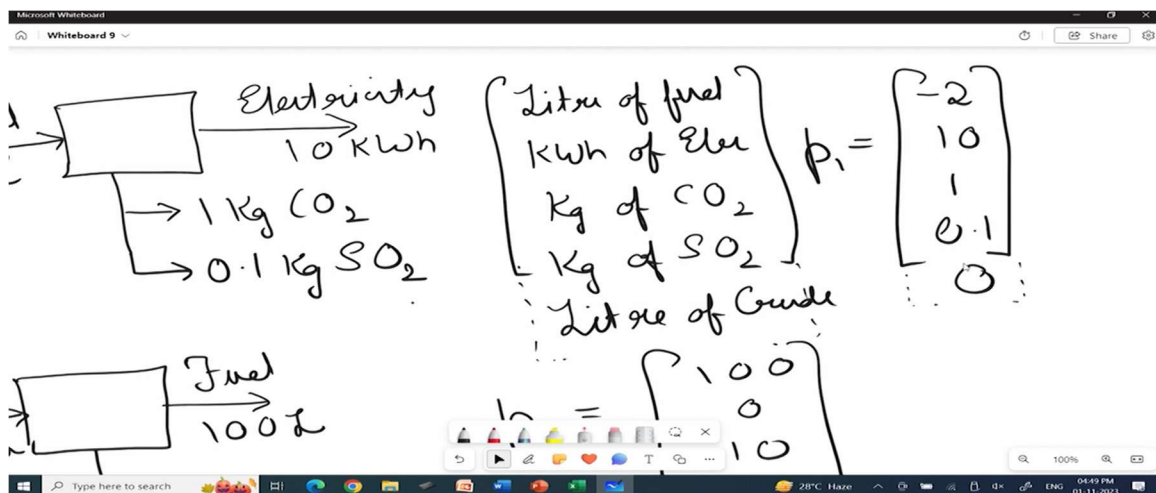 Microsoft Whiteboard
Whiteboard 9
Share
Electricity
10 KWh
1 Kg CO2
0.1 Kg SO2
Litre of fuel
KWh of Elec
Kg of CO2
Kg of SO2
Litre of Crude
p1 =
-2
10
1
0.1
0
Fuel
100L
=
100
0
10
100%
Type here to search
28°C Haze
ENG
04:49 PM
01-11-2023